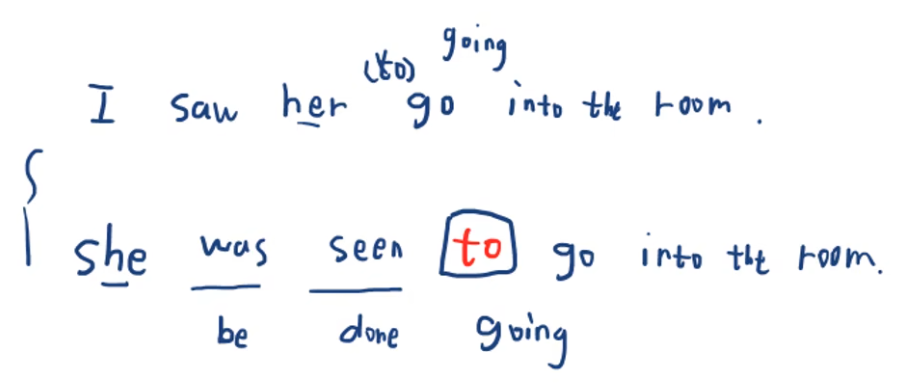 going
(to)
I saw her go into the room.
she was seen to go into the room.
be done going